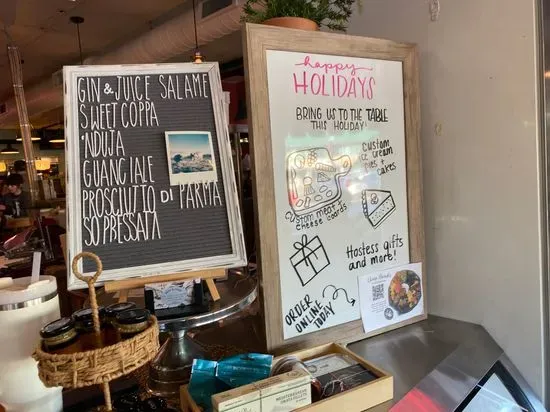 GIN & JUICE SALAME
SWEET COPPA
'NDUJA
GUANCIALE
PROSCIUTTO DI PARMA
SOPRESSATA
happy
HOLIDAYS
BRING US TO THE TABLE
THIS HOLIDAY!
custom meat +
cheese boards
custom
ice cream
pies +
cakes
Hostess gifts
and more!
ORDER
ONLINE
TODAY